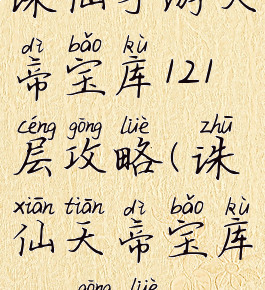 诛仙手游天
dì bǎo kù
帝宝库121
céng gōng lüè zhū
层攻略(诛
xiān tiān dì bǎo kù
仙天帝宝库
gōng lüè